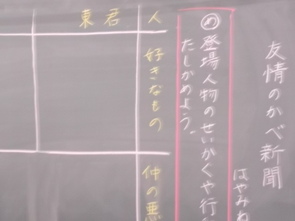 友情のかべ新聞
はやみね
め登場人物のせいかくや行
たしかめよう。
人
好きなもの
仲の悪
東君